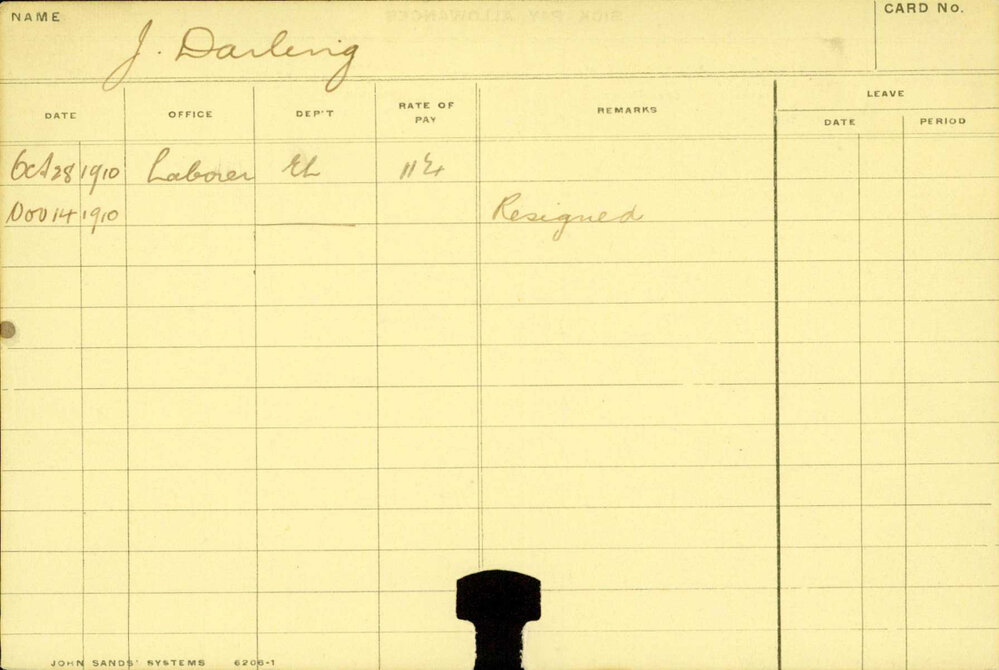 SICK PAY ALLOWANCES
NAME J. Darling CARD No.
DATE OFFICE DEP'T RATE OF PAY REMARKS LEAVE
DATE PERIOD
Oct 28 1910 Laborer EL
Nov 14 1910 Resigned
JOHN SANDS' SYSTEMS 6206-1